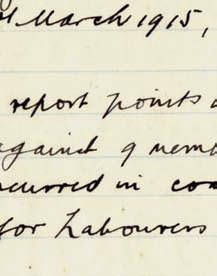 March 1915,
report points
against 9 memb
curred in com
for Labourers